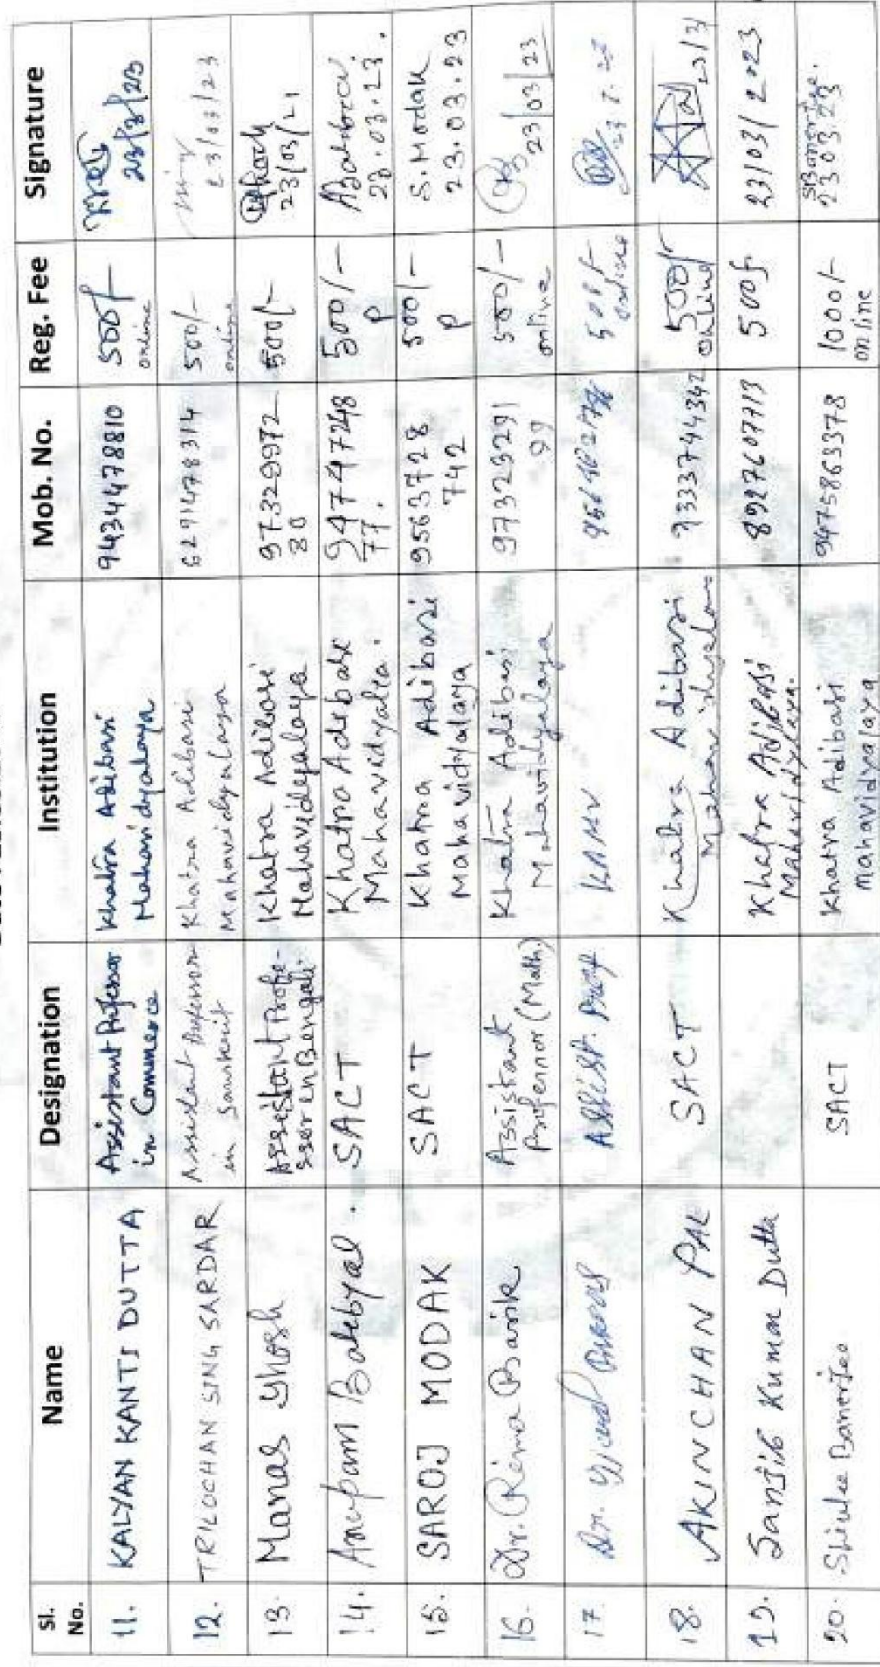 Sl. No. Name Designation Institution Mob. No. Reg. Fee Signature
11. KALYAN KANTI DUTTA Assistant Professor in Commerce Khatra Adibasi Mahavidyalaya 9434478810 500/- online 23/3/23
12. TRILOCHAN SING SARDAR Assistant Professor in Sanskrit Khatra Adibasi Mahavidyalaya 6291478314 500/- online 23/03/23
13. Manas Ghosh Assistant Profe-ssor in Bengali Khatra Adibasi Mahavidyalaya 9732997280 500/- 23/03/21
14. Anupam Batabyal. SACT Khatra Adibasi Mahavidyalya. 9474774877. 500/- P 23.03.23.
15. SAROJ MODAK SACT Khatra Adibasi Mahavidyalaya 9563728742 500/- P S. Modak 23.03.23
16. Dr. Rima Barik Assistant Professor (Math) Khatra Adibasi Mahavidyalaya 9732329199 500/- online 23/03/23
17. Dr. Assist. Prof KAMV 500/- online
18. AKINCHAN PAL SACT Khatra Adibasi Mahavidyalaya 9333744342 500/- online
19. Sanjib Kumar Dutta Khatra Adibasi Mahavidyalaya. 8927607713 500/- 23/03/2023
20. Shiulee Banerjee SACT Khatra Adibasi mahavidyalaya 9475863378 1000/- online SBanerjee. 23.03.23